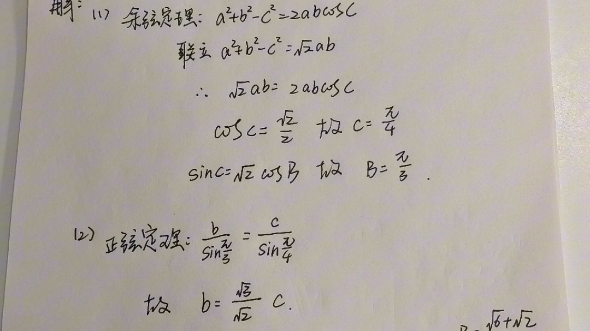 解: (1) 余弦定理: a²+b²-c²=2abcosC
联立 a²+b²-c²=√2ab
∴ √2ab=2abcosC
cosC=√2/2 故 C=π/4
sinC=√2cosB 故 B=π/3.
(2) 正弦定理: b/sin π/3 = c/sin π/4
故 b=√3/√2 c.
√6+√2